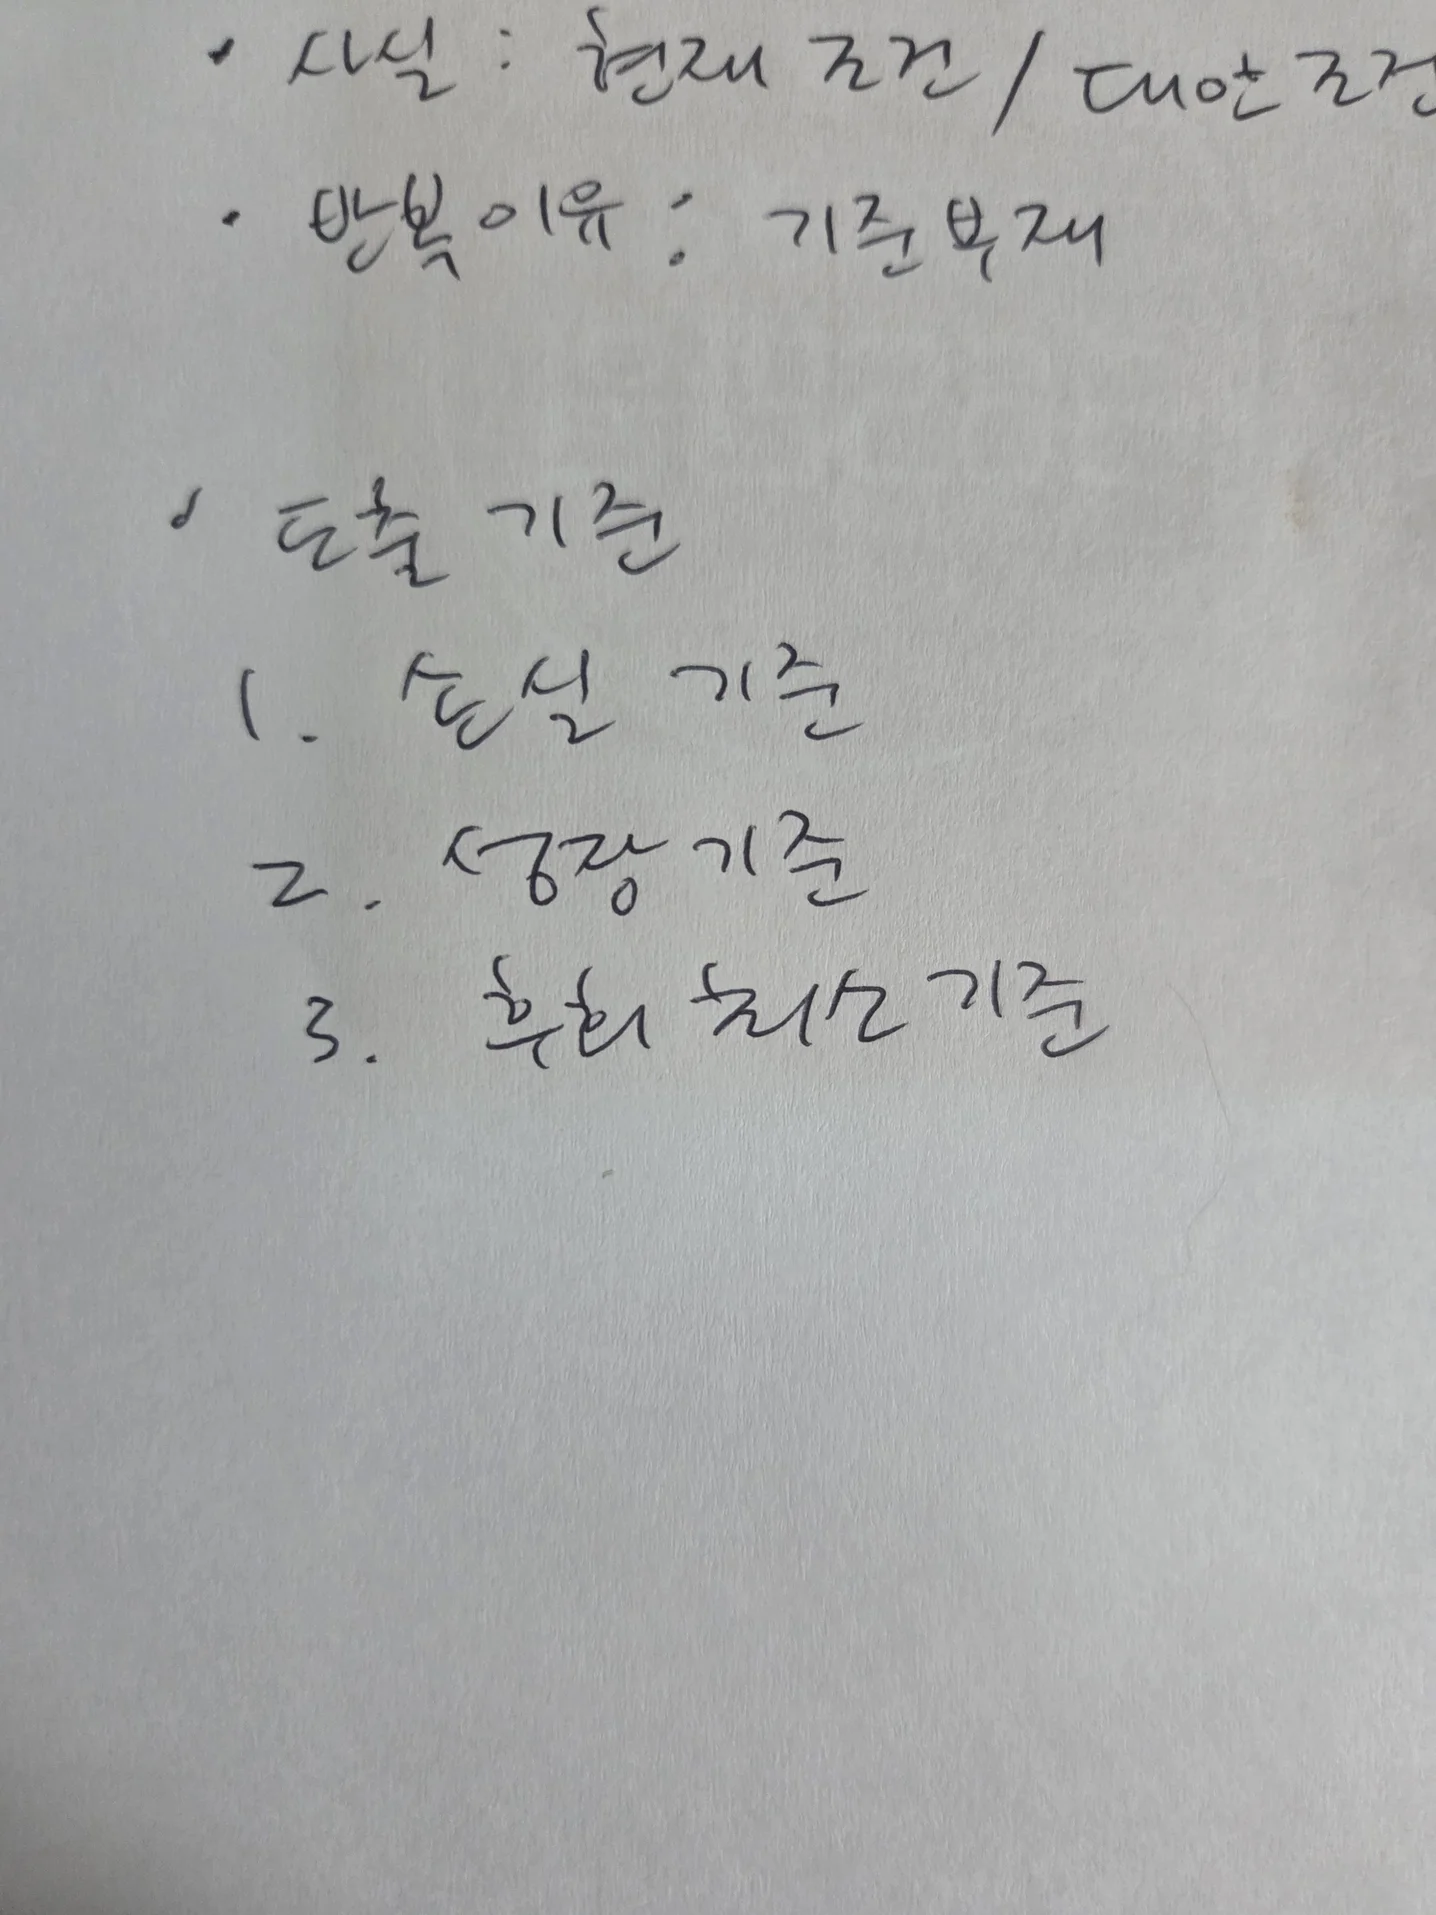 • 사실 : 현재 조건 / 대안 조건
• 반복이유 : 기준부재
• 도출 기준
1. 손실 기준
2. 성장 기준
3. 후회 최소 기준